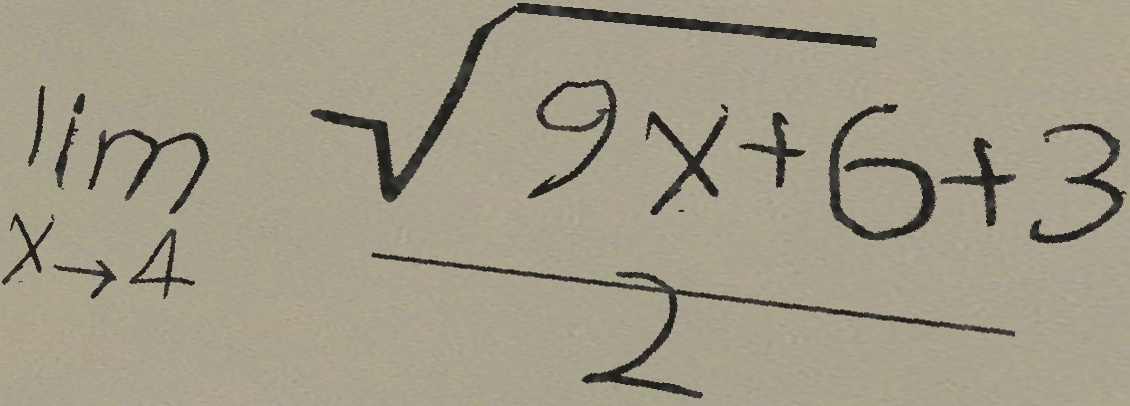 lim x→4 √(9x+6)+3
2